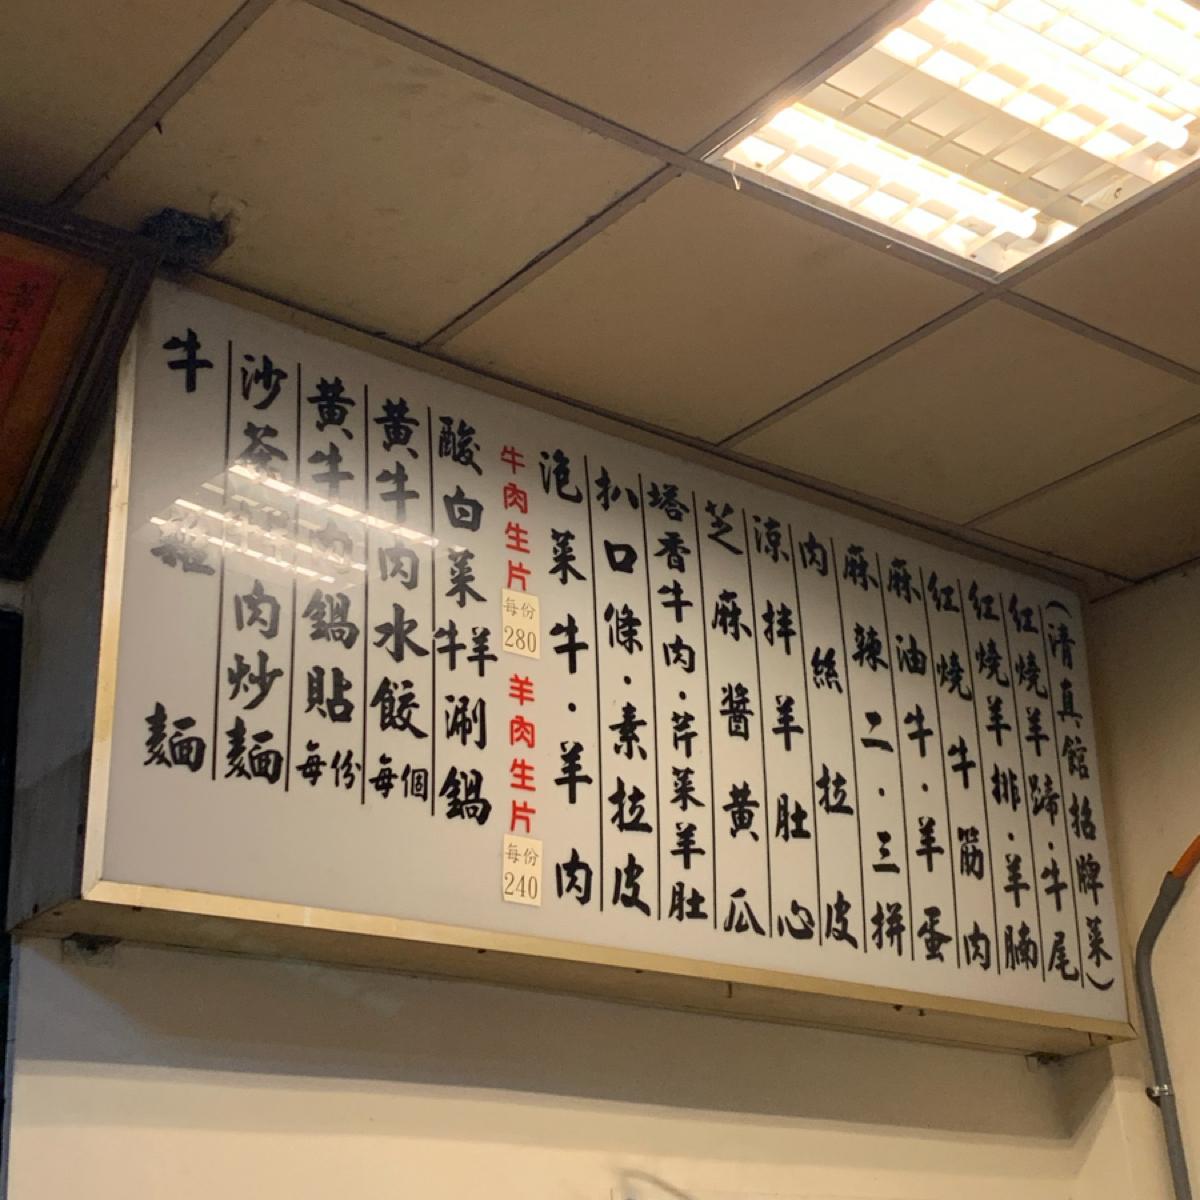 (清真館招牌菜)
紅燒羊蹄·牛尾
紅燒羊排·羊腩
紅燒牛筋肉
麻油牛·羊蛋
麻辣二·三拼
肉絲拉皮
涼拌羊肚心
芝麻醬黃瓜
塔香牛肉·芹菜羊肚
扒口條·素拉皮
泡菜牛·羊肉
牛肉生片
每份
280
羊肉生片
每份
240
酸白菜牛羊涮鍋
黃牛肉水餃每個
黃牛肉鍋貼每份
沙茶肉炒麵
牛雜麵